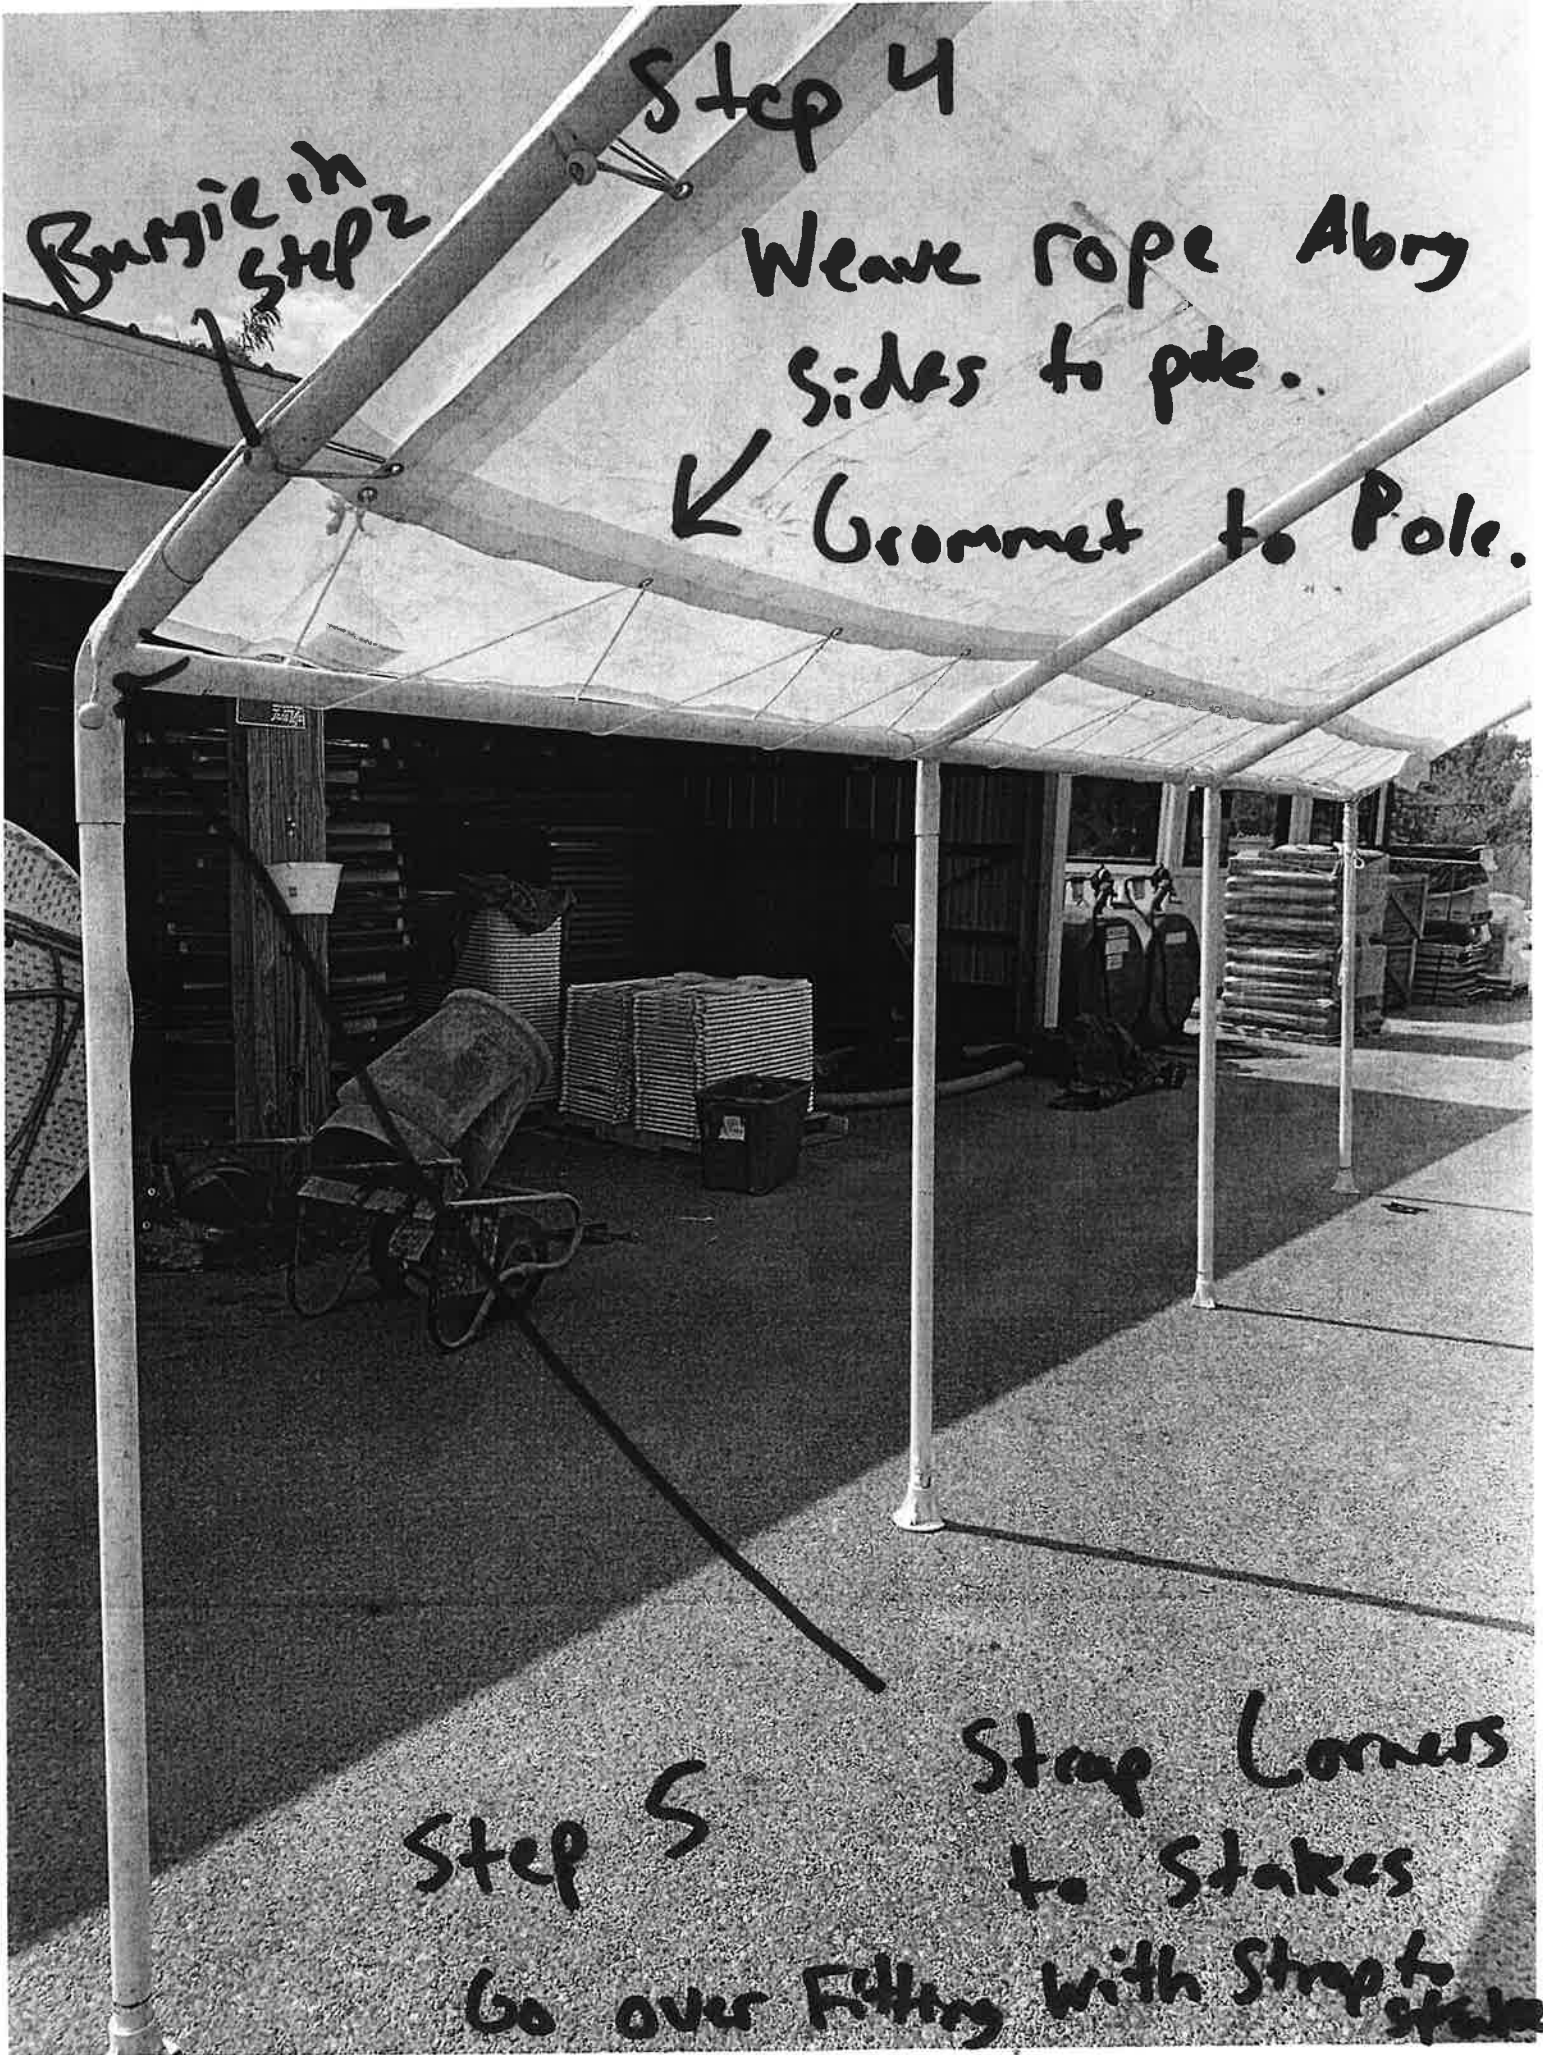 Step 4
Bungie in
step 2
Weave rope Along
sides to pole..
Grommet to Pole.
Step 5
Strap Corners
to Stakes
Go over Fitting With Strap to
stake